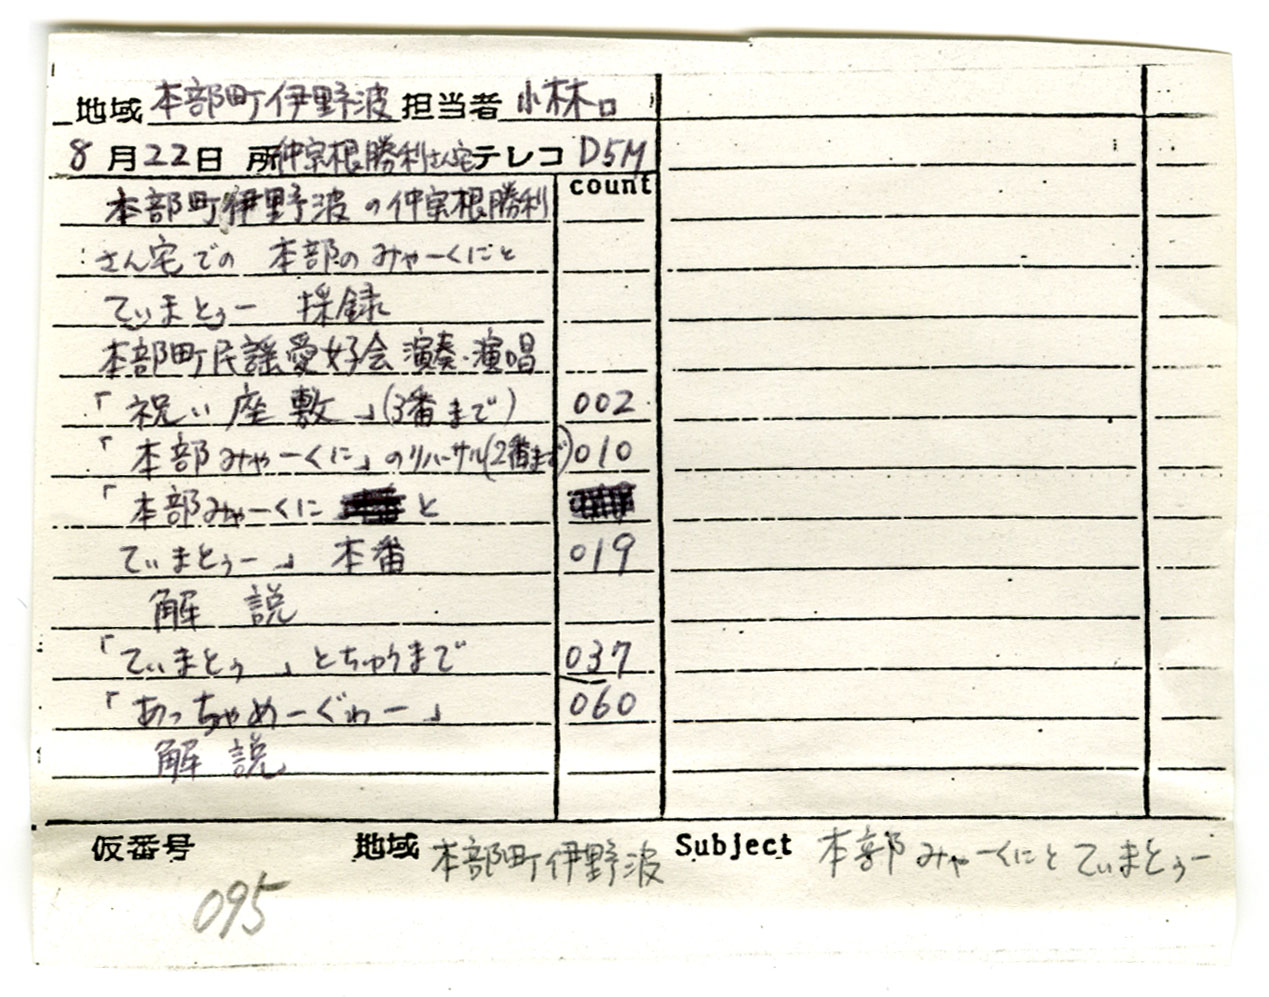 地域 本部町伊野波 担当者 小林
8月22日 所 仲宗根勝利さん宅 テレコ D5M
count
本部町伊野波の仲宗根勝利
さん宅での 本部のみゃーくにと
てぃまとぅー 採録
本部町民謡愛好会 演奏・演唱
「祝い座敷」(3番まで) 002
「本部みゃーくに」のリハーサル(2番まで) 010
「本部みゃーくに と
てぃまとぅー」 本番 019
解説
「てぃまとぅ」とちゅうまで 037
「あっちゃめーぐゎー」 060
解説
仮番号 地域 本部町伊野波 Subject 本部みゃーくにとてぃまとぅー
095